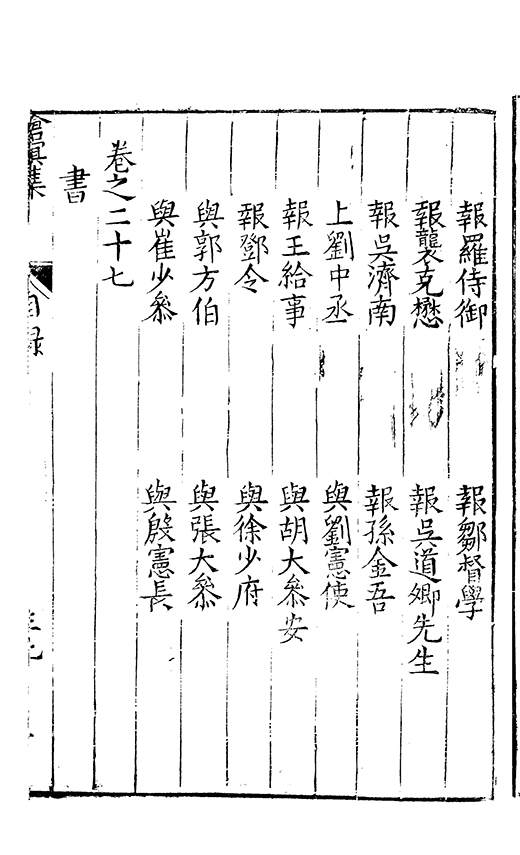 報羅侍御　報鄒督學
報龔克懋　報吳道卿先生
報吳濟南　報孫金吾
上劉中丞　與劉憲使
報王給事　與胡大叅安
報鄧令　與徐少府
與郭方伯　與張大叅
與崔少叅　與殷憲長
卷之二十七
書
滄溟集　目録